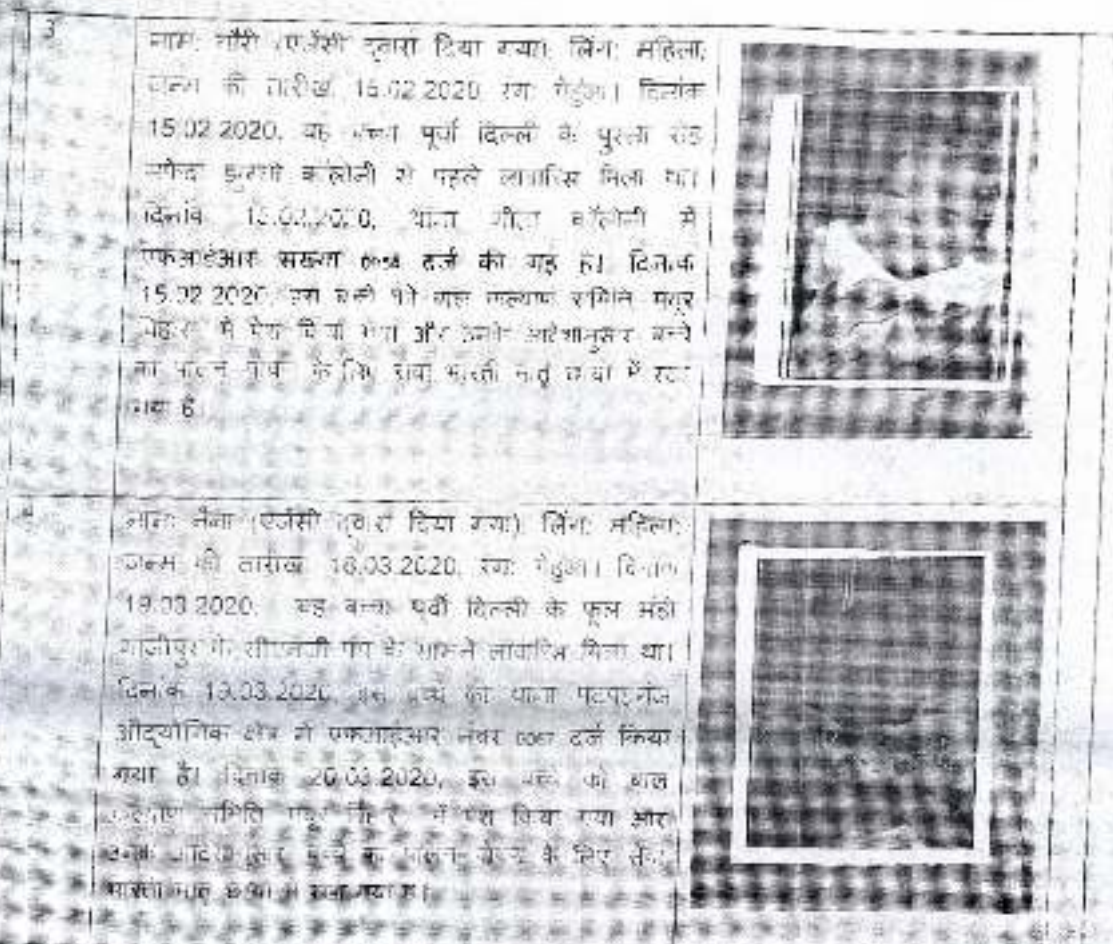 3
नाम: गौरी (एजेंसी द्वारा दिया गया), लिंग: महिला,
जन्म की तारीख 15.02.2020 रंग: गेहुंआ। दिनांक
15.02.2020, यह बच्चा पूर्वी दिल्ली के पुस्ता रोड
कॉलोनी से पहले लावारिस मिला था।
दिनांक थाना गीता कॉलोनी में
एफआईआर संख्या दर्ज की गई है। दिनांक
15.02.2020 इस बच्चे को बाल कल्याण समिति मयूर
विहार में पेश किया गया और उनके आदेशानुसार बच्चे
के लिए सेवा भारती मातृ छाया में रखा
गया है।
नाम: नैना (एजेंसी द्वारा दिया गया), लिंग: महिला,
जन्म की तारीख 18.03.2020, रंग: गेहुंआ। दिनांक
19.03.2020, यह बच्चा पूर्वी दिल्ली के फूल मंडी
गाजीपुर के सीएनजी पंप के सामने लावारिस मिला था।
दिनांक 19.03.2020, इस बच्चे का थाना पटपड़गंज
औद्योगिक क्षेत्र में एफआईआर नंबर दर्ज किया
गया है। दिनांक 20.03.2020, इस बच्चे को बाल
कल्याण समिति मयूर विहार में पेश किया गया और
उनके आदेशानुसार बच्चे का पालन पोषण के लिए सेवा
भारती मातृ छाया में रखा गया है।